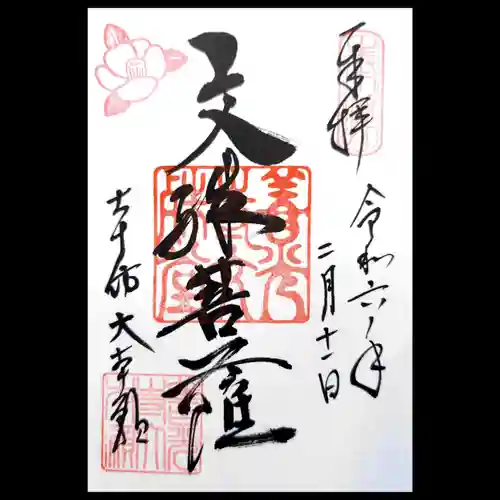 奉拝
令和六年
二月十一日
文殊菩薩
大本願